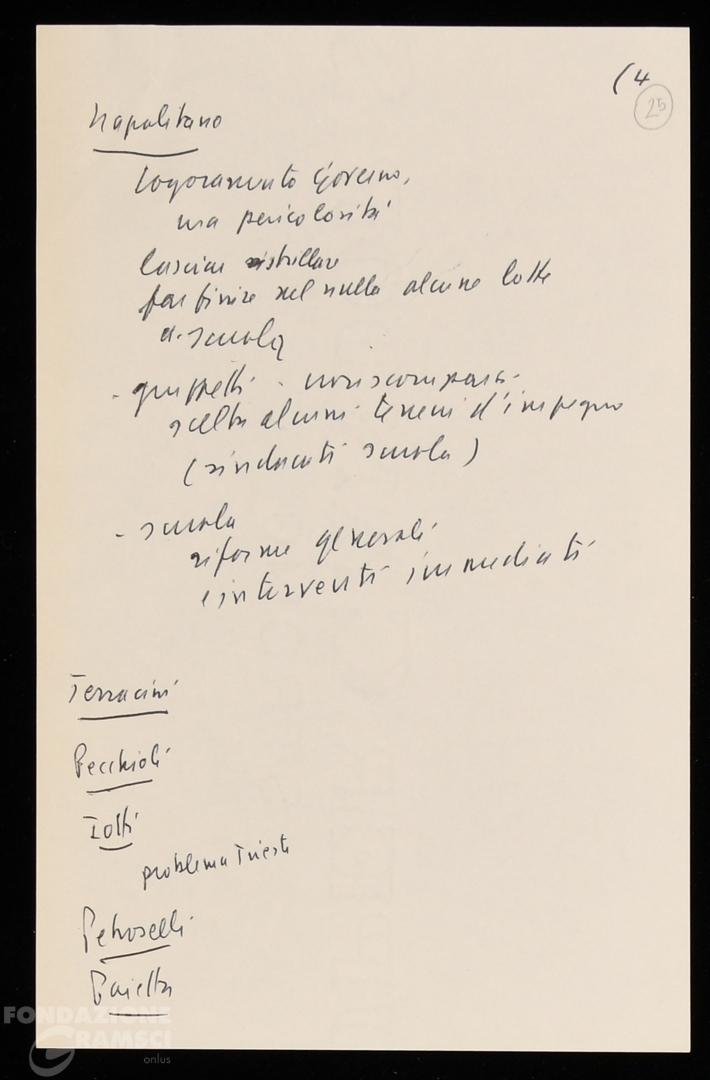 (4
25
Napolitano
logoramento Governo,
ma pericolosità
lasciar
far finire nel nulla alcune lotte
di scuola
- gruppetti - non scomparsi -
scelto alcuni terreni d'impegno
(sindacati scuola)
- scuola
riforme generali
e interventi immediati
Terracini
Pecchioli
Iotti
problema Trieste
Petroselli
Pajetta
FONDAZIONE
GRAMSCI
onlus